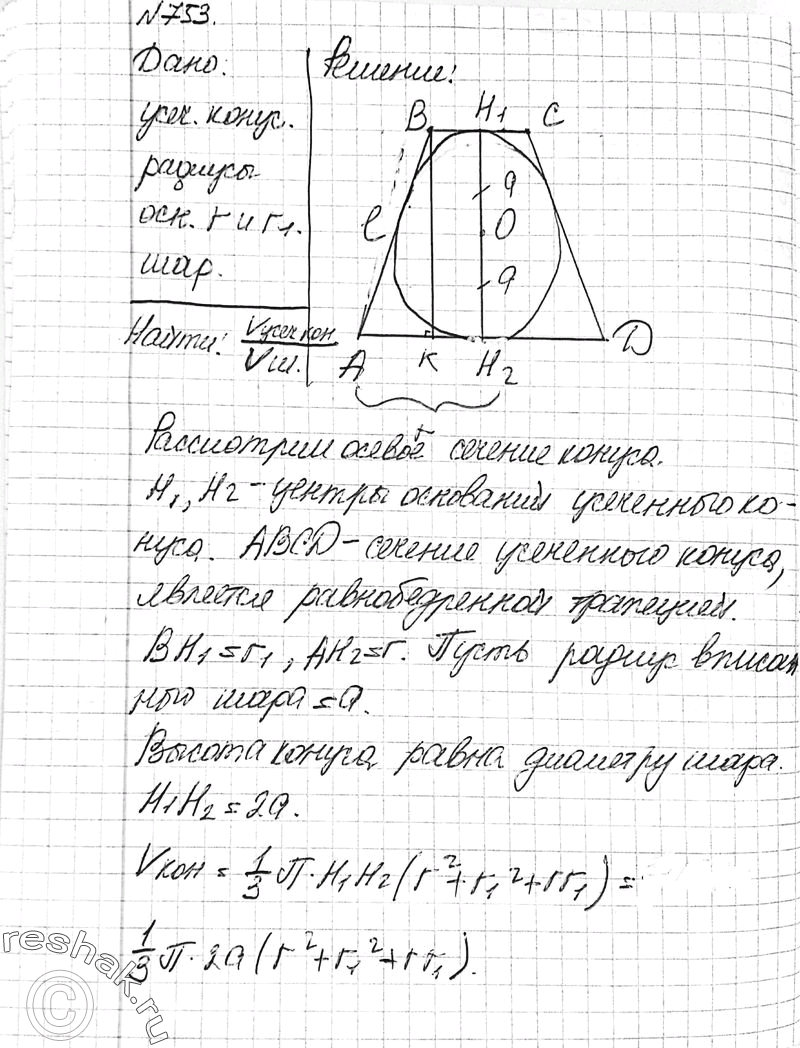 №753.
Дано:
усеч. конус.
радиусы
осн. r и r₁.
шар.
Найти: Vусеч кон / Vш.
Решение:
B H₁ C
a
l O
a
A K H₂ D
r
Рассмотрим осевое сечение конуса.
H₁, H₂ - центры оснований усеченного ко-
нуса. ABCD - сечение усеченного конуса,
является равнобедренной трапецией.
BH₁ = r₁, AH₂ = r. Пусть радиус вписан
ного шара = a.
Высота конуса равна диаметру шара.
H₁H₂ = 2a.
Vкон = 1/3 П · H₁H₂ (r² + r₁² + rr₁) =
1/3 П · 2a (r² + r₁² + rr₁).
reshak.ru
©